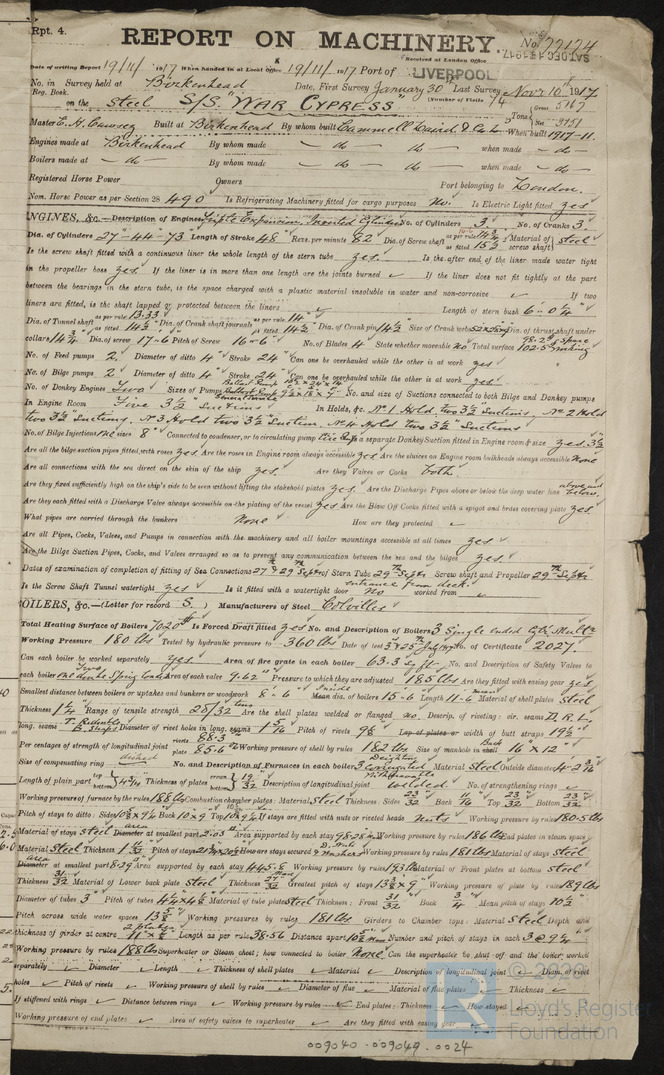 Rpt. 4.
REPORT ON MACHINERY.
No. 77174
SAT. DEC. 1 1917
Date of writing Report 19/11/1917 When handed in at Local Office 19/11/1917 Port of LIVERPOOL
Received at London Office
No. in Survey held at Birkenhead Date, First Survey January 30 Last Survey Novr 10th 1917
Reg. Book. (Number of Visits 74
on the Steel S/S "WAR CYPRESS" Tons Gross 5167 Net 3951
Master E. H. Cawsey Built at Birkenhead By whom built Cammell Laird & Co Ld When built 1917-11.
Engines made at Birkenhead By whom made do do do when made do
Boilers made at do By whom made do do do when made do
Registered Horse Power Owners Port belonging to London.
Nom. Horse Power as per Section 28 490 Is Refrigerating Machinery fitted for cargo purposes No. Is Electric Light fitted yes
ENGINES, &c.—Description of Engines Triple Expansion, Inverted Cylinder No. of Cylinders 3. No. of Cranks 3.
Dia. of Cylinders 27"-44"-73" Length of Stroke 48" Revs. per minute 82 Dia. of Screw shaft as per rule as fitted 15 1/2 Material of screw shaft Steel
Is the screw shaft fitted with a continuous liner the whole length of the stern tube yes. Is the after end of the liner made water tight
in the propeller boss yes. If the liner is in more than one length are the joints burned ✓ If the liner does not fit tightly at the part
between the bearings in the stern tube, is the space charged with a plastic material insoluble in water and non-corrosive ✓ If two
liners are fitted, is the shaft lapped or protected between the liners ✓ Length of stern bush 6'-0 1/4"
Dia. of Tunnel shaft as per rule 13.33 as fitted 14 1/2" Dia. of Crank shaft journals as per rule 14" as fitted 14 1/2 Dia. of Crank pin 14 1/2 Size of Crank webs Dia. of thrust shaft under
collars 14 3/4 Dia. of screw 17-6 Pitch of Screw 16-6 No. of Blades 4 State whether moveable No Total surface
No. of Feed pumps 2. Diameter of ditto 4" Stroke 24" Can one be overhauled while the other is at work yes
No. of Bilge pumps 2. Diameter of ditto 4" Stroke 24" Can one be overhauled while the other is at work yes.
No. of Donkey Engines Two Sizes of Pumps No. and size of Suctions connected to both Bilge and Donkey pumps
In Engine Room Five 3 1/2" Suctions In Holds, &c. No 1 Hold, two 3 1/2" Suctions, No 2 Hold
two 3 1/2" Suctions, No 3 Hold two 3 1/2" Suction, No 4 Hold two 3 1/2" Suctions
No. of Bilge Injections one sizes 8" Connected to condenser, or to circulating pump Circ. Is a separate Donkey Suction fitted in Engine room & size yes. 3 1/2
Are all the bilge suction pipes fitted with roses yes Are the roses in Engine room always accessible yes Are the sluices on Engine room bulkheads always accessible None
Are all connections with the sea direct on the skin of the ship yes. Are they Valves or Cocks both.
Are they fixed sufficiently high on the ship's side to be seen without lifting the stokehold plates yes. Are the Discharge Pipes above or below the deep water line above and below.
Are they each fitted with a Discharge Valve always accessible on the plating of the vessel yes Are the Blow Off Cocks fitted with a spigot and brass covering plate yes
What pipes are carried through the bunkers None How are they protected ✓
Are all Pipes, Cocks, Valves, and Pumps in connection with the machinery and all boiler mountings accessible at all times yes
Are the Bilge Suction Pipes, Cocks, and Valves arranged so as to prevent any communication between the sea and the bilges yes.
Dates of examination of completion of fitting of Sea Connections 27 & 29th Septr of Stern Tube 29th Septr Screw shaft and Propeller 29th Septr
Is the Screw Shaft Tunnel watertight yes Is it fitted with a watertight door No entrance from deck worked from ✓
BOILERS, &c.—(Letter for record S. ) Manufacturers of Steel Colvilles
Total Heating Surface of Boilers 7020 Is Forced Draft fitted yes No. and Description of Boilers 3 Single ended Cyl. Mult.
Working Pressure 180 lbs Tested by hydraulic pressure to 360 lbs Date of test No. of Certificate 2027.
Can each boiler be worked separately yes Area of fire grate in each boiler 63.3 sq ft No. and Description of Safety Valves to
each boiler Area of each valve 9.62" Pressure to which they are adjusted 185 lbs Are they fitted with easing gear yes
Smallest distance between boilers or uptakes and bunkers or woodwork 8'-6 Inside Mean dia. of boilers 15-6 Length 11-6 mean Material of shell plates Steel
Thickness Range of tensile strength 28/32 tons Are the shell plates welded or flanged no. Descrip. of riveting: cir. seams D.R.L.
long. seams Diameter of rivet holes in long. seams 1 5/16 Pitch of rivets Lap of plates or width of butt straps
Per centages of strength of longitudinal joint rivets 88.3 plate 85.6 Working pressure of shell by rules 182 lbs Size of manhole in shell Back 16" x 12"
Size of compensating ring No. and Description of Furnaces in each boiler 3 Material Steel Outside diameter
Length of plain part top bottom Thickness of plates crown bottom 19/32 Description of longitudinal joint welded. No. of strengthening rings ✓
Working pressure of furnace by the rules 188 lbs Combustion chamber plates: Material Steel Thickness: Sides 23/32 Back Top 23/32 Bottom 23/32
Pitch of stays to ditto: Sides Back 10 x 9 Top If stays are fitted with nuts or riveted heads Nuts Working pressure by rules 180.5 lbs
Material of stays Steel area Diameter at smallest part 2.03 Area supported by each stay 98.28 Working pressure by rules 186 lbs End plates in steam space:
Material Steel Thickness Pitch of stays How are stays secured Working pressure by rules 181 lbs Material of stays Steel
area Diameter at smallest part 8.29 Area supported by each stay 445.5 Working pressure by rules 193 lbs Material of Front plates at bottom Steel
Thickness 31/32 Material of Lower back plate Steel Thickness Greatest pitch of stays Working pressure of plate by rules 189 lbs
Diameter of tubes 3" Pitch of tubes Material of tube plates Steel Thickness: Front 31/32 Back 3/4 Mean pitch of stays
Pitch across wide water spaces 13 1/2 Working pressures by rules 181 lbs Girders to Chamber tops: Material Steel Depth and
thickness of girder at centre Length as per rule 38.56 Distance apart Number and pitch of stays in each
Working pressure by rules 188 lbs Superheater or Steam chest; how connected to boiler None Can the superheater be shut off and the boiler worked
separately ✓ Diameter ✓ Length ✓ Thickness of shell plates ✓ Material ✓ Description of longitudinal joint ✓ Diam. of rivet
holes ✓ Pitch of rivets ✓ Working pressure of shell by rules ✓ Diameter of flue ✓ Material of flue plates Thickness ✓
If stiffened with rings ✓ Distance between rings ✓ Working pressure by rules ✓ End plates: Thickness How stayed
Working pressure of end plates ✓ Area of safety valves to superheater ✓ Are they fitted with easing gear ✓
© 2020
Lloyd's Register
Foundation
009040-009049-0024